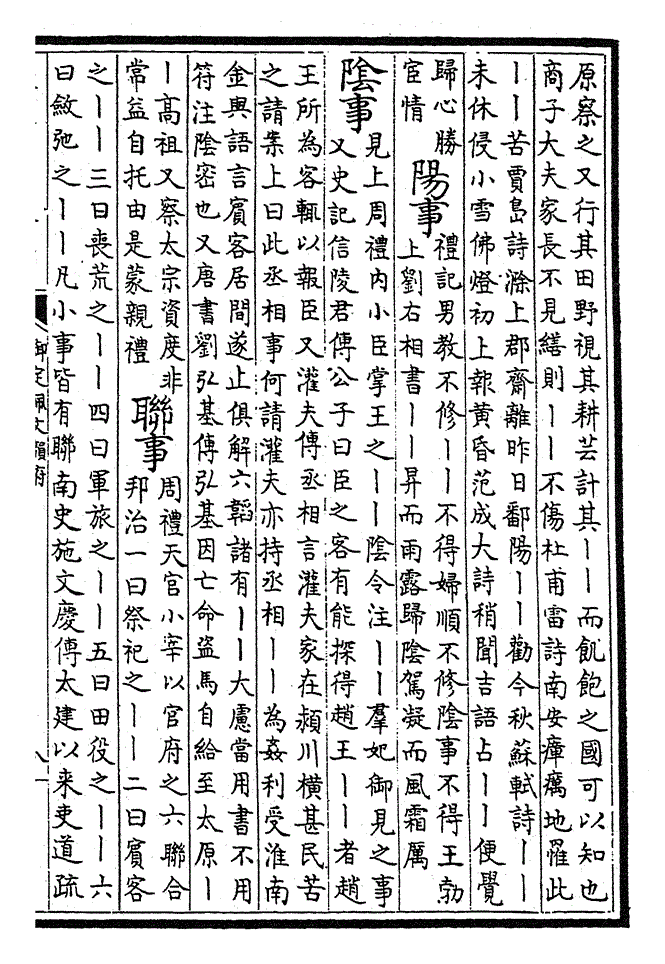 原察之又行其田野視其耕芸計其丨丨而飢飽之國可以知也
商子大夫家長不見繕則丨丨不傷杜甫雷詩南安瘴癘地罹此
丨丨苦賈島詩滁上郡齋離昨日鄱陽丨丨勸今秋蘇軾詩丨丨
未休侵小雪佛燈初上報黄昏范成大詩稍聞吉語占丨丨便覺
歸心勝
宦情
陽事
禮記男教不修丨丨不得婦順不修陰事不得王勃
上劉右相書丨丨昇而雨露歸陰駕凝而風霜厲
陰事
見上周禮内小臣掌王之丨丨陰令注丨丨羣妃御見之事
又史記信陵君傳公子曰臣之客有能探得趙王丨丨者趙
王所為客輒以報臣又灌夫傳丞相言灌夫家在潁川橫甚民苦
之請案上曰此丞相事何請灌夫亦持丞相丨丨為姦利受淮南
金與語言賓客居間遂止俱解六韜諸有丨丨大慮當用書不用
符注陰密也又唐書劉弘基傳弘基因亡命盜馬自給至太原丨
丨高祖又察太宗資度非
常益自托由是蒙親禮
聯事
周禮天官小宰以官府之六聯合
邦治一曰祭祀之丨丨二曰賓客
之丨丨三曰喪荒之丨丨四曰軍旅之丨丨五曰田役之丨丨六
曰斂弛之丨丨凡小事皆有聯南史施文慶傳太建以来吏道疏
御定佩文韻府